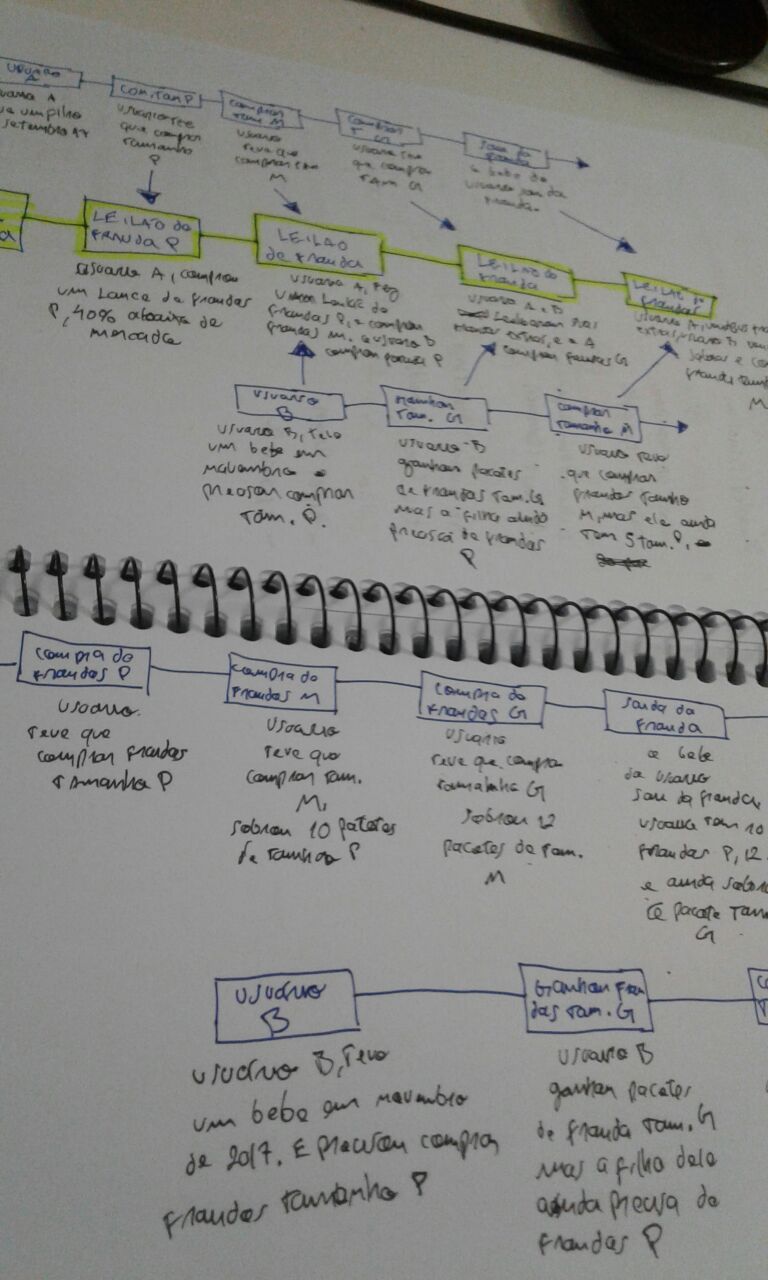 usuário A
uario A
ve um filho
setembro 17
com. Tam P
usuario teve
que comprar
tamanho
P
comprar
Tam M
usuario
teve que
comprar tam
M
comprar
T G
usuario teve
que comprar
Tam G
saiu da
frauda
o bebe do
usuario saiu da
frauda.
LEILAO de
FRAUDA P
usuario A, comprou
um Lance de fraudas
P, 40% abaixo de
mercado
LEILAO
de Frauda
usuario A, fez
um Lance de
fraudas P, e comprou
fraudas M. e usuario B
comprou P
LEILAO de
frauda
usuario A, B
Leiloaram suas
fraudas extras, e o A
comprou fraudas G
LEILAO de
fraudas
usuario A,
extras, usuario B
sobras e com
frauda tam
M
usuario
B
usuario B, teve
um bebe em
novembro e
precisou comprar
Tam. P.
Ganhou
Tam. G
usuario B
ganhou pacotes
de fraudas Tam. G
mas a filho ainda
precisa de fraudas
P
comprar
tamanho M
usuario teve
que comprar
fraudas tamanho
M, mas ele ainda
tem 5 tam. P,
compra de
fraudas P
usuario
teve que
comprar fraudas
tamanho P
compra de
fraudas M
usuario
teve que
comprar tam.
M,
sobrou 10 pacotes
de tamanho P
compra de
fraudas G
usuario
teve que comprar
tamanho G
sobrou 12
pacotes de tam.
M
saida da
frauda
o bebe
do usuario
saiu da frauda,
usuario tem 10
fraudas P, 12
e ainda sobrou
pacote tam
G
usuário
B
usuário B, teve
um bebe em novembro
de 2017. E precisou comprar
fraudas tamanho P
Ganhou frau
das tam. G
usuario B
ganhou pacotes
de frauda tam. G
mas a filho dele
ainda precisa de
fraudas P